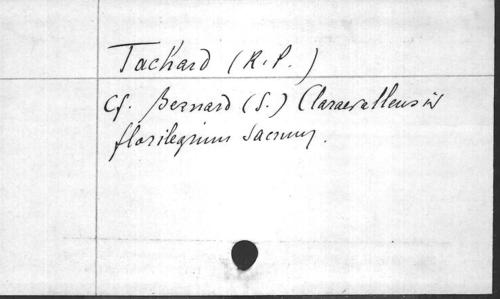 Tachard (R.P.)
Cf. Bernard (S.) Claraevallensis
florilegium sacrum.